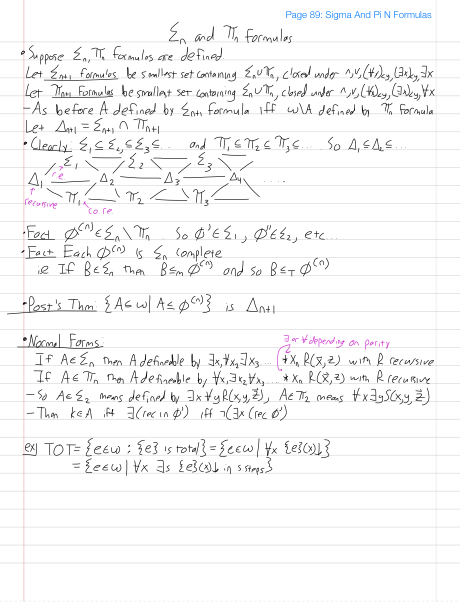 Page 89: Sigma And Pi N Formulas
Σn and Πn formulas
• Suppose Σn, Πn formulas are defined
Let Σn+1 formulas be smallest set containing Σn∪Πn, closed under ∧,∨,(∀x)<y,(∃x)<y,∃x
Let Πn+1 formulas be smallest set containing Σn∪Πn, closed under ∧,∨,(∀x)<y,(∃x)<y,∀x
- As before A defined by Σn+1 formula iff ω\A defined by Πn formula
Let Δn+1 = Σn+1 ∩ Πn+1
• Clearly Σ1 ⊆ Σ2 ⊆ Σ3 ⊆ ... and Π1 ⊆ Π2 ⊆ Π3 ⊆ ... So Δ1 ⊆ Δ2 ⊆ ...
Σ1 Σ2 Σ3
r.e
Δ1 Δ2 Δ3 Δ4
Π1 Π2 Π3 ....
recursive
co.re
• Fact ∅(n) ∈ Σn \ Πn So ∅' ∈ Σ1, ∅'' ∈ Σ2, etc...
• Fact Each ∅(n) is Σn complete
ie If B∈Σn then B≤m ∅(n) and so B≤T ∅(n)
• Post's Thm: {A⊆ω | A≤ ∅(n)} is Δn+1
• Normal Forms:
∃ or ∀ depending on parity
If A∈Σn then A defineable by ∃x1∀x2∃x3.... *xn R(x̄,z) with R recursive
If A∈Πn then A defineable by ∀x1∃x2∀x3... *xn R(x̄,z) with R recursive
- So A∈Σ2 means defined by ∃x∀yR(x,y,z̄), A∈Π2 means ∀x∃yS(x,y,z̄)
- Then k∈A iff ∃(rec in ∅') iff ¬(∃x (rec ∅')
ex) TOT = {e∈ω : {e} is total} = {e∈ω | ∀x {e}(x)↓}
= {e∈ω | ∀x ∃s {e}(x)↓ in s steps}